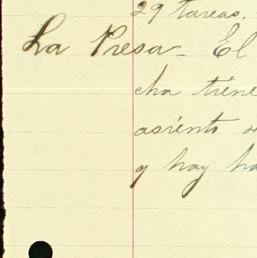 29 tareas.
La Presa - El
cha tiene
asiento
y hay